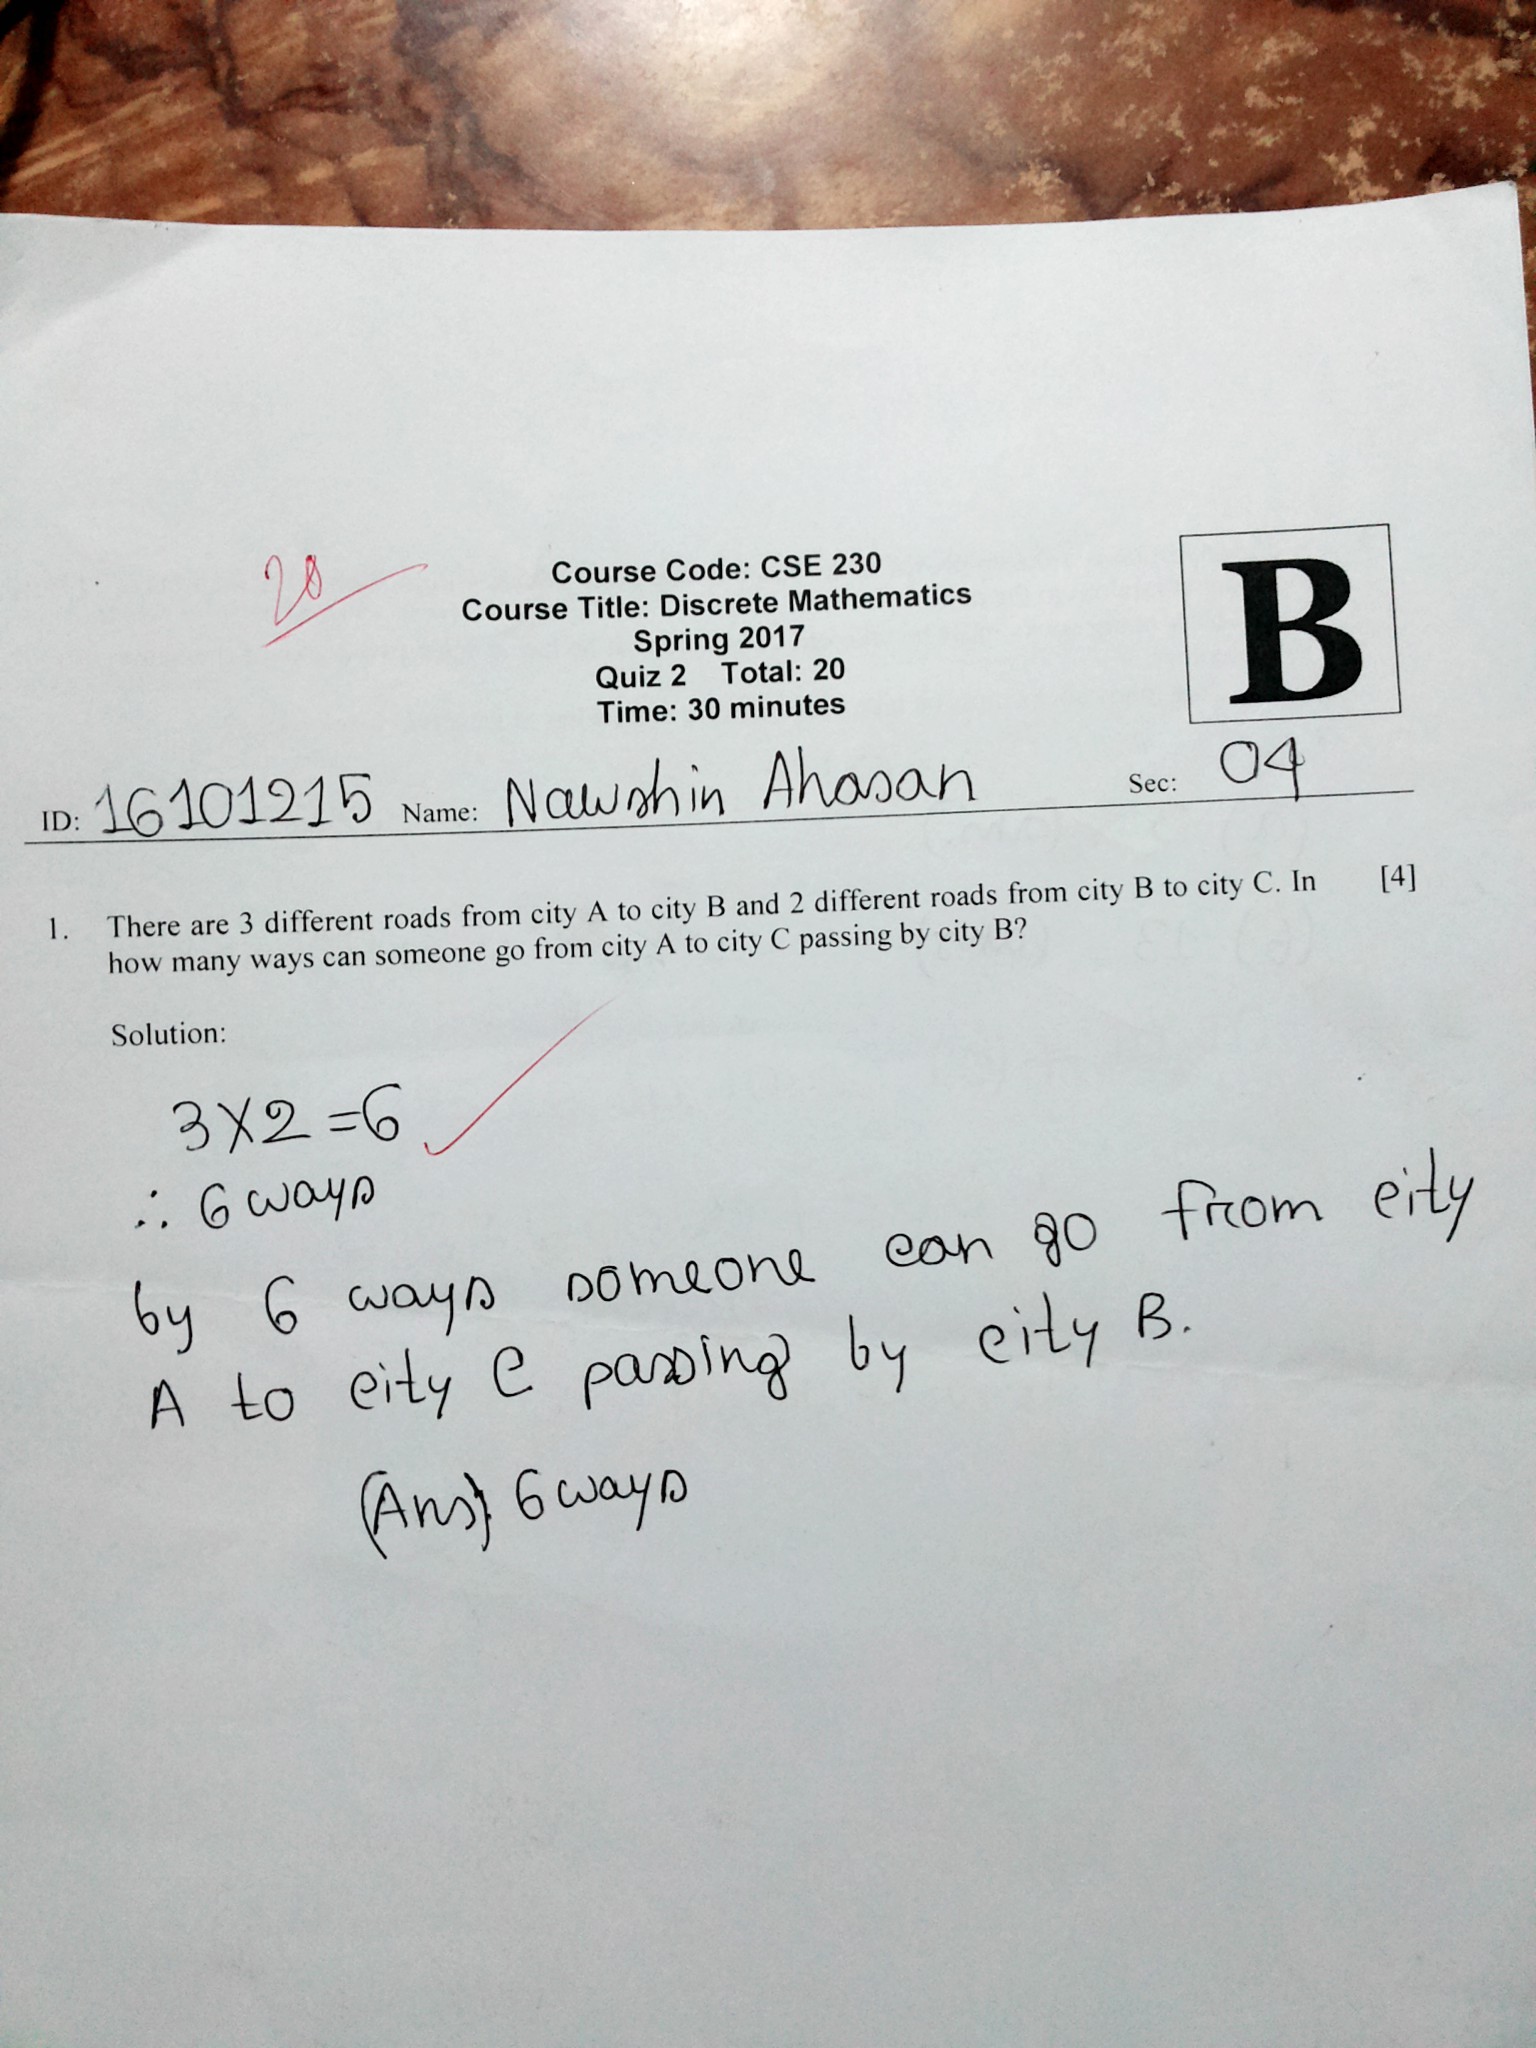 20
Course Code: CSE 230
Course Title: Discrete Mathematics
Spring 2017
Quiz 2 Total: 20
Time: 30 minutes
B
ID: 16101215 Name: Nawshin Ahasan Sec: 04
1. There are 3 different roads from city A to city B and 2 different roads from city B to city C. In [4]
how many ways can someone go from city A to city C passing by city B?
Solution:
3X2=6
∴ 6 ways
by 6 ways someone can go from city
A to city C passing by city B.
(Ans): 6 ways